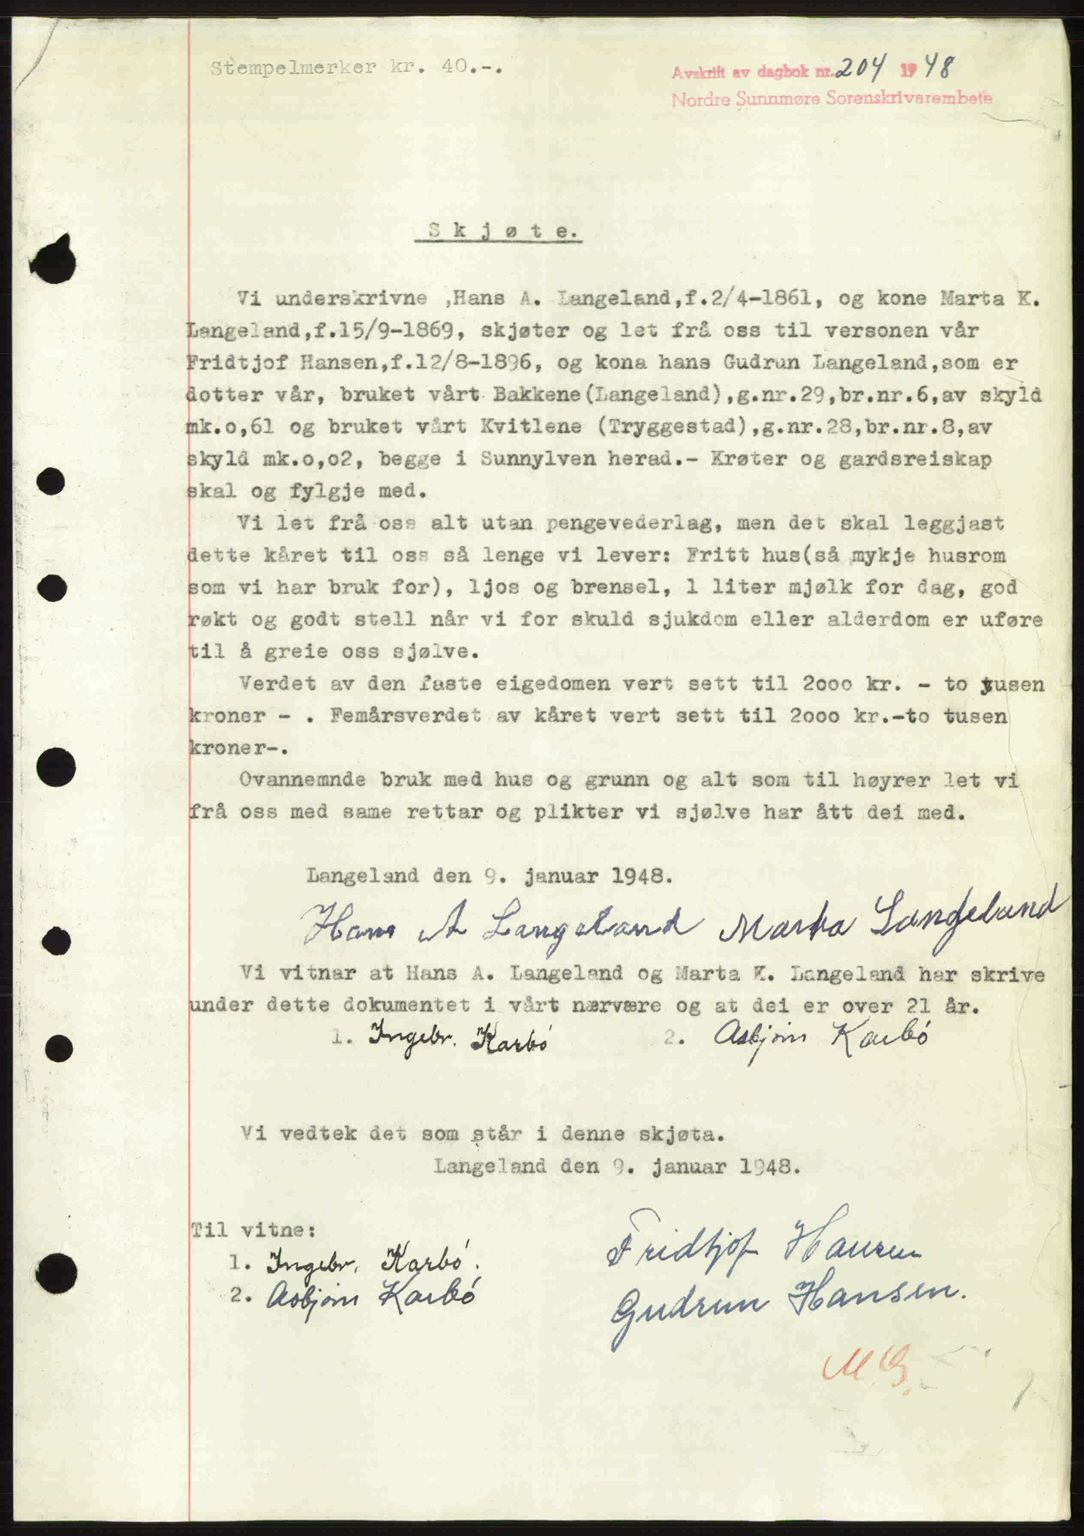 Stempelmerker kr. 40.-.
Avskrift av dagbok nr. 204 1948
Nordre Sunnmøre Sorenskriverembete
Skjøte.
Vi underskrivne ,Hans A. Langeland,f.2/4-1861, og kone Marta K.
Langeland,f.15/9-1869, skjøter og let frå oss til versonen vår
Fridtjof Hansen,f.12/8-1896, og kona hans Gudrun Langeland,som er
dotter vår, bruket vårt Bakkene(Langeland),g.nr.29,br.nr.6,av skyld
mk.o,61 og bruket vårt Kvitlene (Tryggestad),g.nr.28,br.nr.8,av
skyld mk.o,o2, begge i Sunnylven herad.- Krøter og gardsreiskap
skal og fylgje med.
Vi let frå oss alt utan pengevederlag, men det skal leggjast
dette kåret til oss så lenge vi lever: Fritt hus(så mykje husrom
som vi har bruk for), ljos og brensel, 1 liter mjølk for dag, god
røkt og godt stell når vi for skuld sjukdom eller alderdom er uføre
til å greie oss sjølve.
Verdet av den faste eigedomen vert sett til 2000 kr. - to tusen
kroner - . Femårsverdet av kåret vert sett til 2000 kr.-to tusen
kroner-.
Ovannemnde bruk med hus og grunn og alt som til høyrer let vi
frå oss med same rettar og plikter vi sjølve har ått dei med.
Langeland den 9. januar 1948.
Hans A Langeland Marta Langeland
Vi vitnar at Hans A. Langeland og Marta K. Langeland har skrive
under dette dokumentet i vårt nærvære og at dei er over 21 år.
1. Ingebr. Karbó 2. Asbjørn Karbó
Vi vedtek det som står i denne skjøta.
Langeland den 9. januar 1948.
Til vitne:
1. Ingebr. Karbó.
2. Asbjørn Karbó
Fridtjof Hansen
Gudrun Hansen.
M.G.